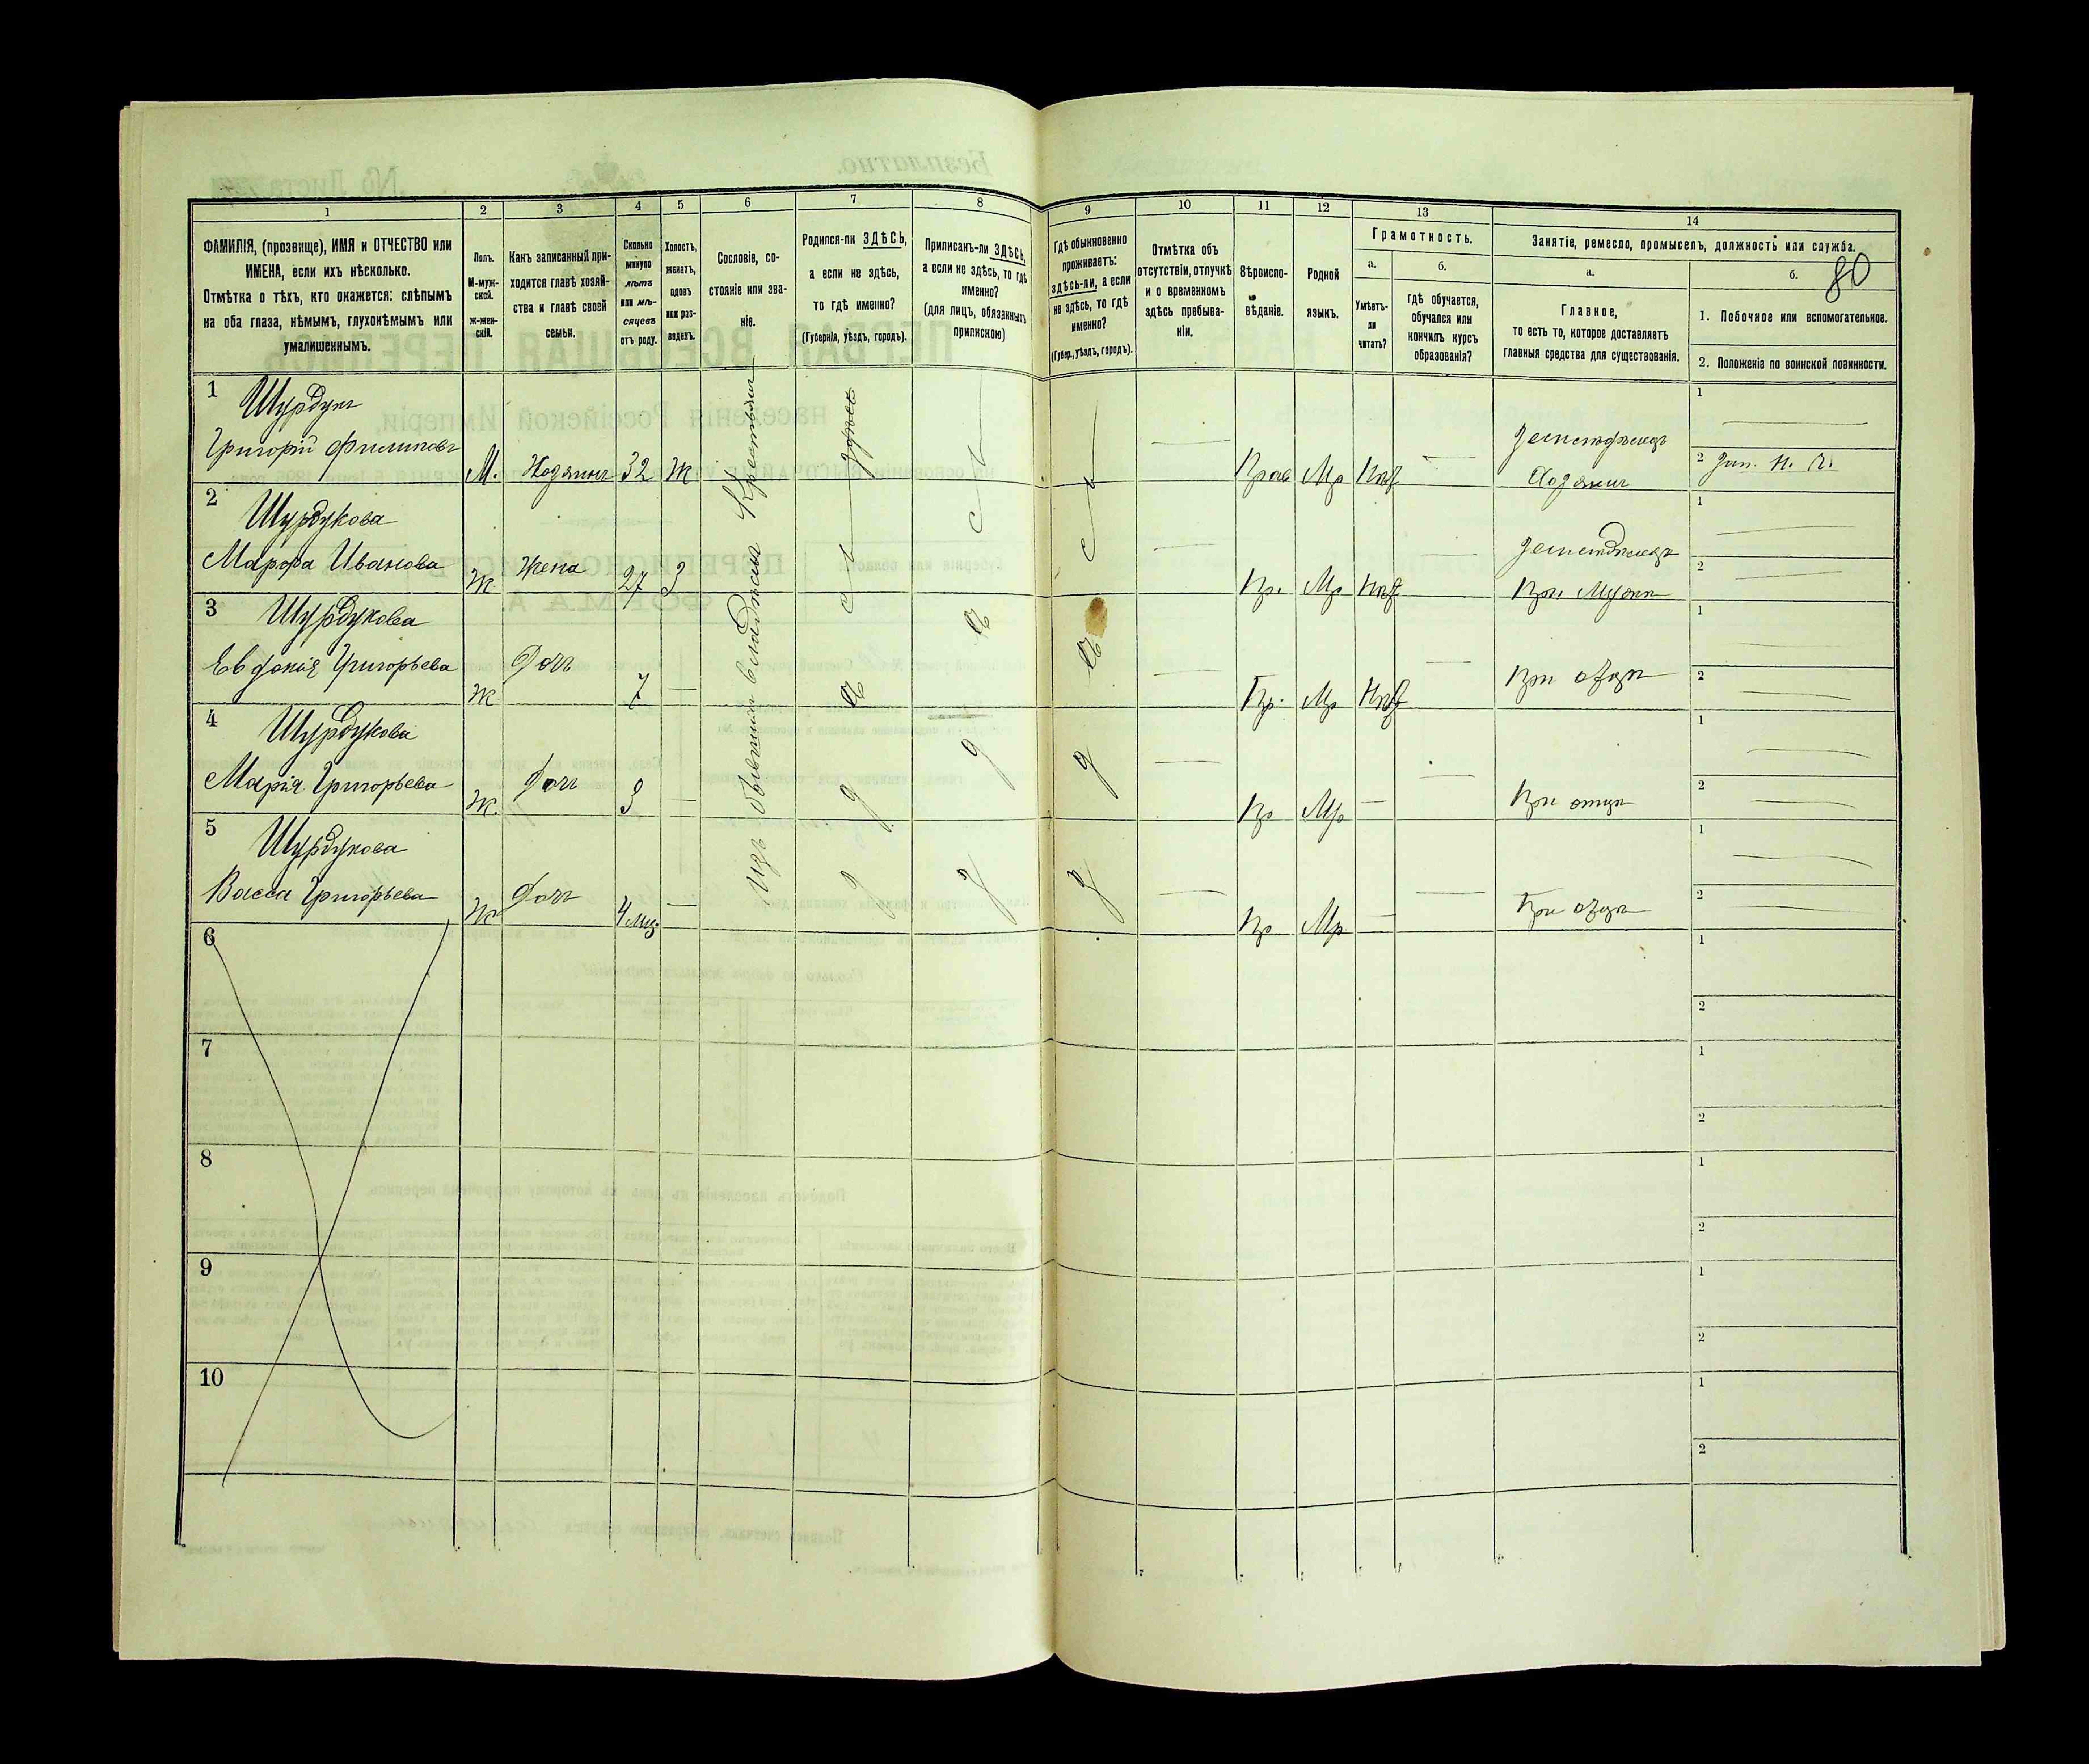 80
1
2
3
4
5
6
7
8
9
10
11
12
13
14
ФАМИЛІЯ, (прозвище), ИМЯ и ОТЧЕСТВО или
ИМЕНА, если ихъ нѣсколько.
Отмѣтка о тѣхъ, кто окажется: слѣпымъ
на оба глаза, нѣмымъ, глухонѣмымъ или
умалишеннымъ.
Полъ.
М-муж-
ской.
ж-жен-
скій.
Какъ записанный при-
ходится главѣ хозяй-
ства и главѣ своей
семьи.
Сколько
минуло
лѣтъ
или мѣ-
сяцевъ
отъ роду.
Холостъ,
женатъ,
вдовъ
или раз-
веденъ.
Сословіе, со-
стояніе или зва-
ніе.
Родился-ли ЗДѢСЬ,
а если не здѣсь,
то гдѣ именно?
(Губернія, уѣздъ, городъ).
Приписанъ-ли ЗДѢСЬ,
а если не здѣсь, то гдѣ
именно?
(для лицъ, обязанныхъ
припискою)
Гдѣ обыкновенно
проживаетъ:
здѣсь-ли, а если
не здѣсь, то гдѣ
именно?
(Губер., уѣздъ, городъ).
Отмѣтка объ
отсутствіи, отлучкѣ
и о временномъ
здѣсь пребыва-
ніи.
Вѣроиспо-
вѣданіе.
Родной
языкъ.
Грамотность.
а.
Умѣетъ-
ли
читать?
б.
гдѣ обучается,
обучался или
кончилъ курсъ
образованія?
Занятіе, ремесло, промыселъ, должность или служба.
а.
Главное,
то есть то, которое доставляетъ
главныя средства для существованія.
б.
1. Побочное или вспомогательное.
2. Положеніе по воинской повинности.
1
Шурдукъ
Григорій Филиповъ
М.
Хозяинъ
32
Ж
Изъ бывшихъ владѣльч Крестьянъ
здѣсь
Прав
Мр
Нѣт
Земледѣлецъ
Хозяинъ
1
2
2
Шурдукова
Марфа Иванова
Ж
Жена
27
З
Пр.
Мр
Нѣт
Земледѣлецъ
При Мужѣ
1
2
3
Шурдукова
Евдокія Григорьева
Ж
Дочь
7
Пр.
Мр
Нѣт
При отцѣ
1
2
4
Шурдукова
Марія Григорьева
Ж.
Дочь
3
Пр
Мр
При отцѣ
1
2
5
Шурдукова
Васса Григорьева
Ж
Дочь
4 мѣс.
Пр
Мр.
При отцѣ
1
2
6
1
2
7
1
2
8
1
2
9
1
2
10
1
2